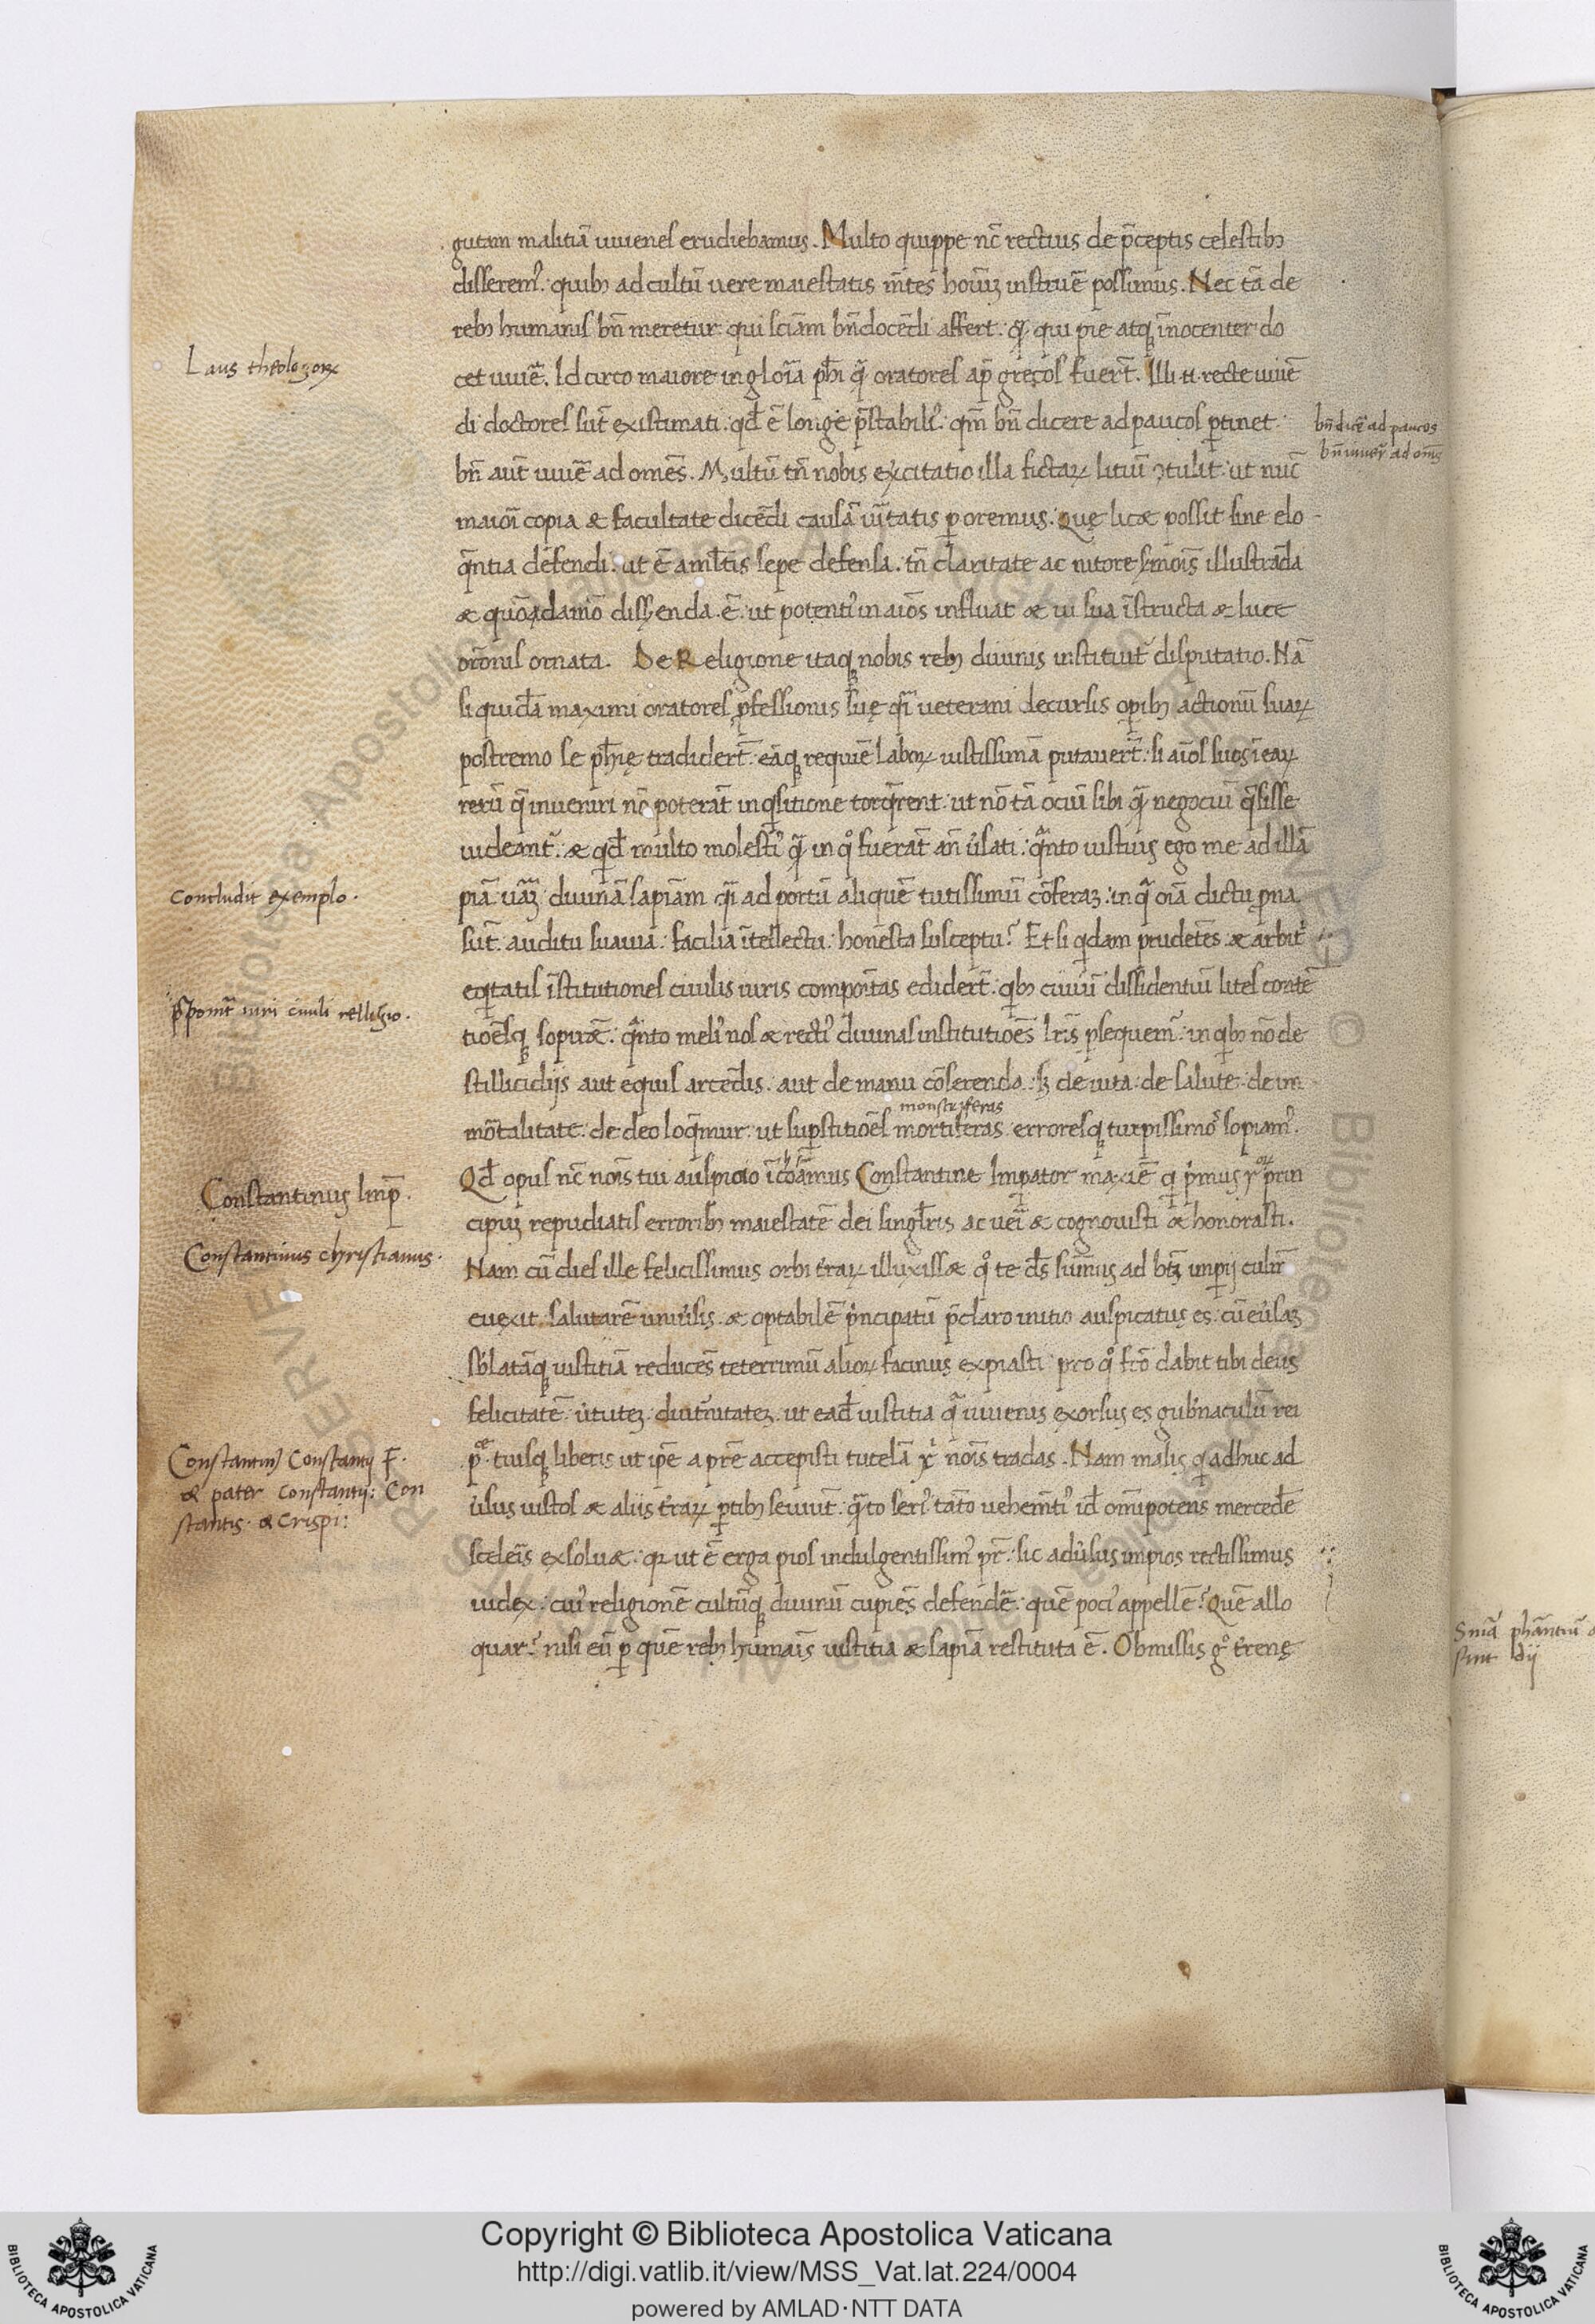 gutam malitiā iuuenes erudiebamus. Multo quippe nc̄ rectius de p̄ceptis celestib;
disserem᷒. quib; ad cultū uere maiestatis m̄tes hoīuz instruē possimus. Nec tā de
reb; humanis bn̄ meretur qui sciām bn̄ docēdi affert. q̄ qui pie atq; īnocenter do
cet uiuē̄. Id circo maiore in gloīa ph̄i q̄ oratores ap̄ grecos fuer̄t. Illi .n. recte uiuē
di doctores sūt existimati. qd̄ ē longe p̄stabili᷒. qm̄ bn̄ dicere ad paucos ꝑtinet.
bn̄ aut̄ uiuē̄ ad omēs. Multū tn̄ nobis excitatio illa fictaꝝ litiū ꝯtulit. ut nūc
maioī copia & facultate dicēdi causā ūitatis ꝑoremus. Que licæ possit sine elo
q̄ntia defendi. ut ē a ml̄tis sepe defensa. tn̄ claritate ac nitore sm̄ois illustrāda
æ quodāmō disserenda .ē. ut potenti᷒ in aīos influat æ ui sua īstructa æ luce
or̄onis ornata. De Religione itaq; nobis reb; diuinis instituit᷒ disputatio. Nā
si quidā maximi oratores ꝓfessionis sue q̄i ueterani decursis opib; actionū suaꝝ
postremo se ph̄ie tradider̄t. eāq; requiē laboꝝ iustissimā putauer̄t. si aīos suos ī eaꝝ
rerū q̄ inueniri nō poterāt inq̇sitione torq̄rent. ut nō tā ociū sibi q̄ negociū q̄sisse
uideant᷒. æ qd̄ multo molesti᷒ q̄ in qͦ fuerāt an̄ ūsati. q̄nto iustius ego me ad illā
piā uāz diuinā sapiām q̄i ad portū aliquē tutissimū cōferaz. in q̄ oīa dictu ꝓna
sūt. auditu suauia. facilia ītellectu. honesta susceptu? Et si q̇dam prudētes æ arbit᷒
eq̇tatis īstitutiones ciuilis iuris compoītas edider̄t. q̇b; ciuiū dissidentiū lites contē
tiōesq; sopiræ. q̄nto meli᷒ nos æ recti᷒ diuinas institutiōes lr̄is ꝑsequem᷒. in q̇b; nō de
stillicidijs aut equis arcēdis. aut de manu cōserenda. sꝫ de uita. de salute. de im
mōtalitate. de deo loq̄mur. ut suꝑstitiōes mortiferas erroresq; turpissimos sopiam᷒.
monstriferas
Qd̄ opus nc̄ noīs tui auspicio īcoāmus Constantine Imꝑator maxīe q̇ ṗmus ro. prin
cipuz repudiatis errorib; maiestatē dei singl̄ris ac ueī æ cognouisti æ honorasti.
Nam cū dies ille felicissimus orbi t̄raꝝ illuxissæ qͦ te d̄s sūmus ad bt̄z imꝑij culm̄
euexit. salutarē uniūsis. æ optabilē ṗncipatū p̄claro initio auspicatus es. cū eūsaz
sb̄latāq; iustitiā reducēs teterrimū alioꝝ facinus expiasti. pro qͦ fcō dabit tibi deus
felicitatē. ūtutez. diut᷒nitatez. ut eād iustitia q̄ iuuenis exorsus es gub̄naculū rei
p͞. tuisq; liberis ut ip̄e a pr̄e accepisti tutelā ro. noīs tradas. Nam malis q̇ adhuc ad
ūsus iustos æ aliis t̄raꝝ ꝑtib; seuiūt. q̄to seri᷒ tāto uehem̄ti᷒ id̄ omīpotens mercedē
sceleīs exsoluæ. qꝛ ut ē erga pios indulgentissim᷒ pr̄. sic adūsus impios rectissimus
iudex. cui᷒ religionē cultūq; diuinū cupiēs defendē̄. quē poci᷒ appellē? Quē allo
quar? nisi eū ꝑ quē reb; humaīs iustitia æ sapiā restituta ē. Obmissis gͦ t̄rene
Laus theologoꝝ
bn̄ dicē̄ ad paucos
bn̄ uiuer̄ ad om̄s
Concludit exemplo.
p̄ponit᷒ iuri ciuili relligio.
Constantinus Imp̄.
Constantinus christianus.
Constantin᷒ Constantij F.
& pater Constantij: Con
stantis. & Crispi:
sunt dij
Copyright © Biblioteca Apostolica Vaticana
http://digi.vatlib.it/view/MSS_Vat.lat.224/0004
powered by AMLAD·NTT DATA
BIBLIOTECA APOSTOLICA VATICANA
BIBLIOTECA APOSTOLICA VATICANA